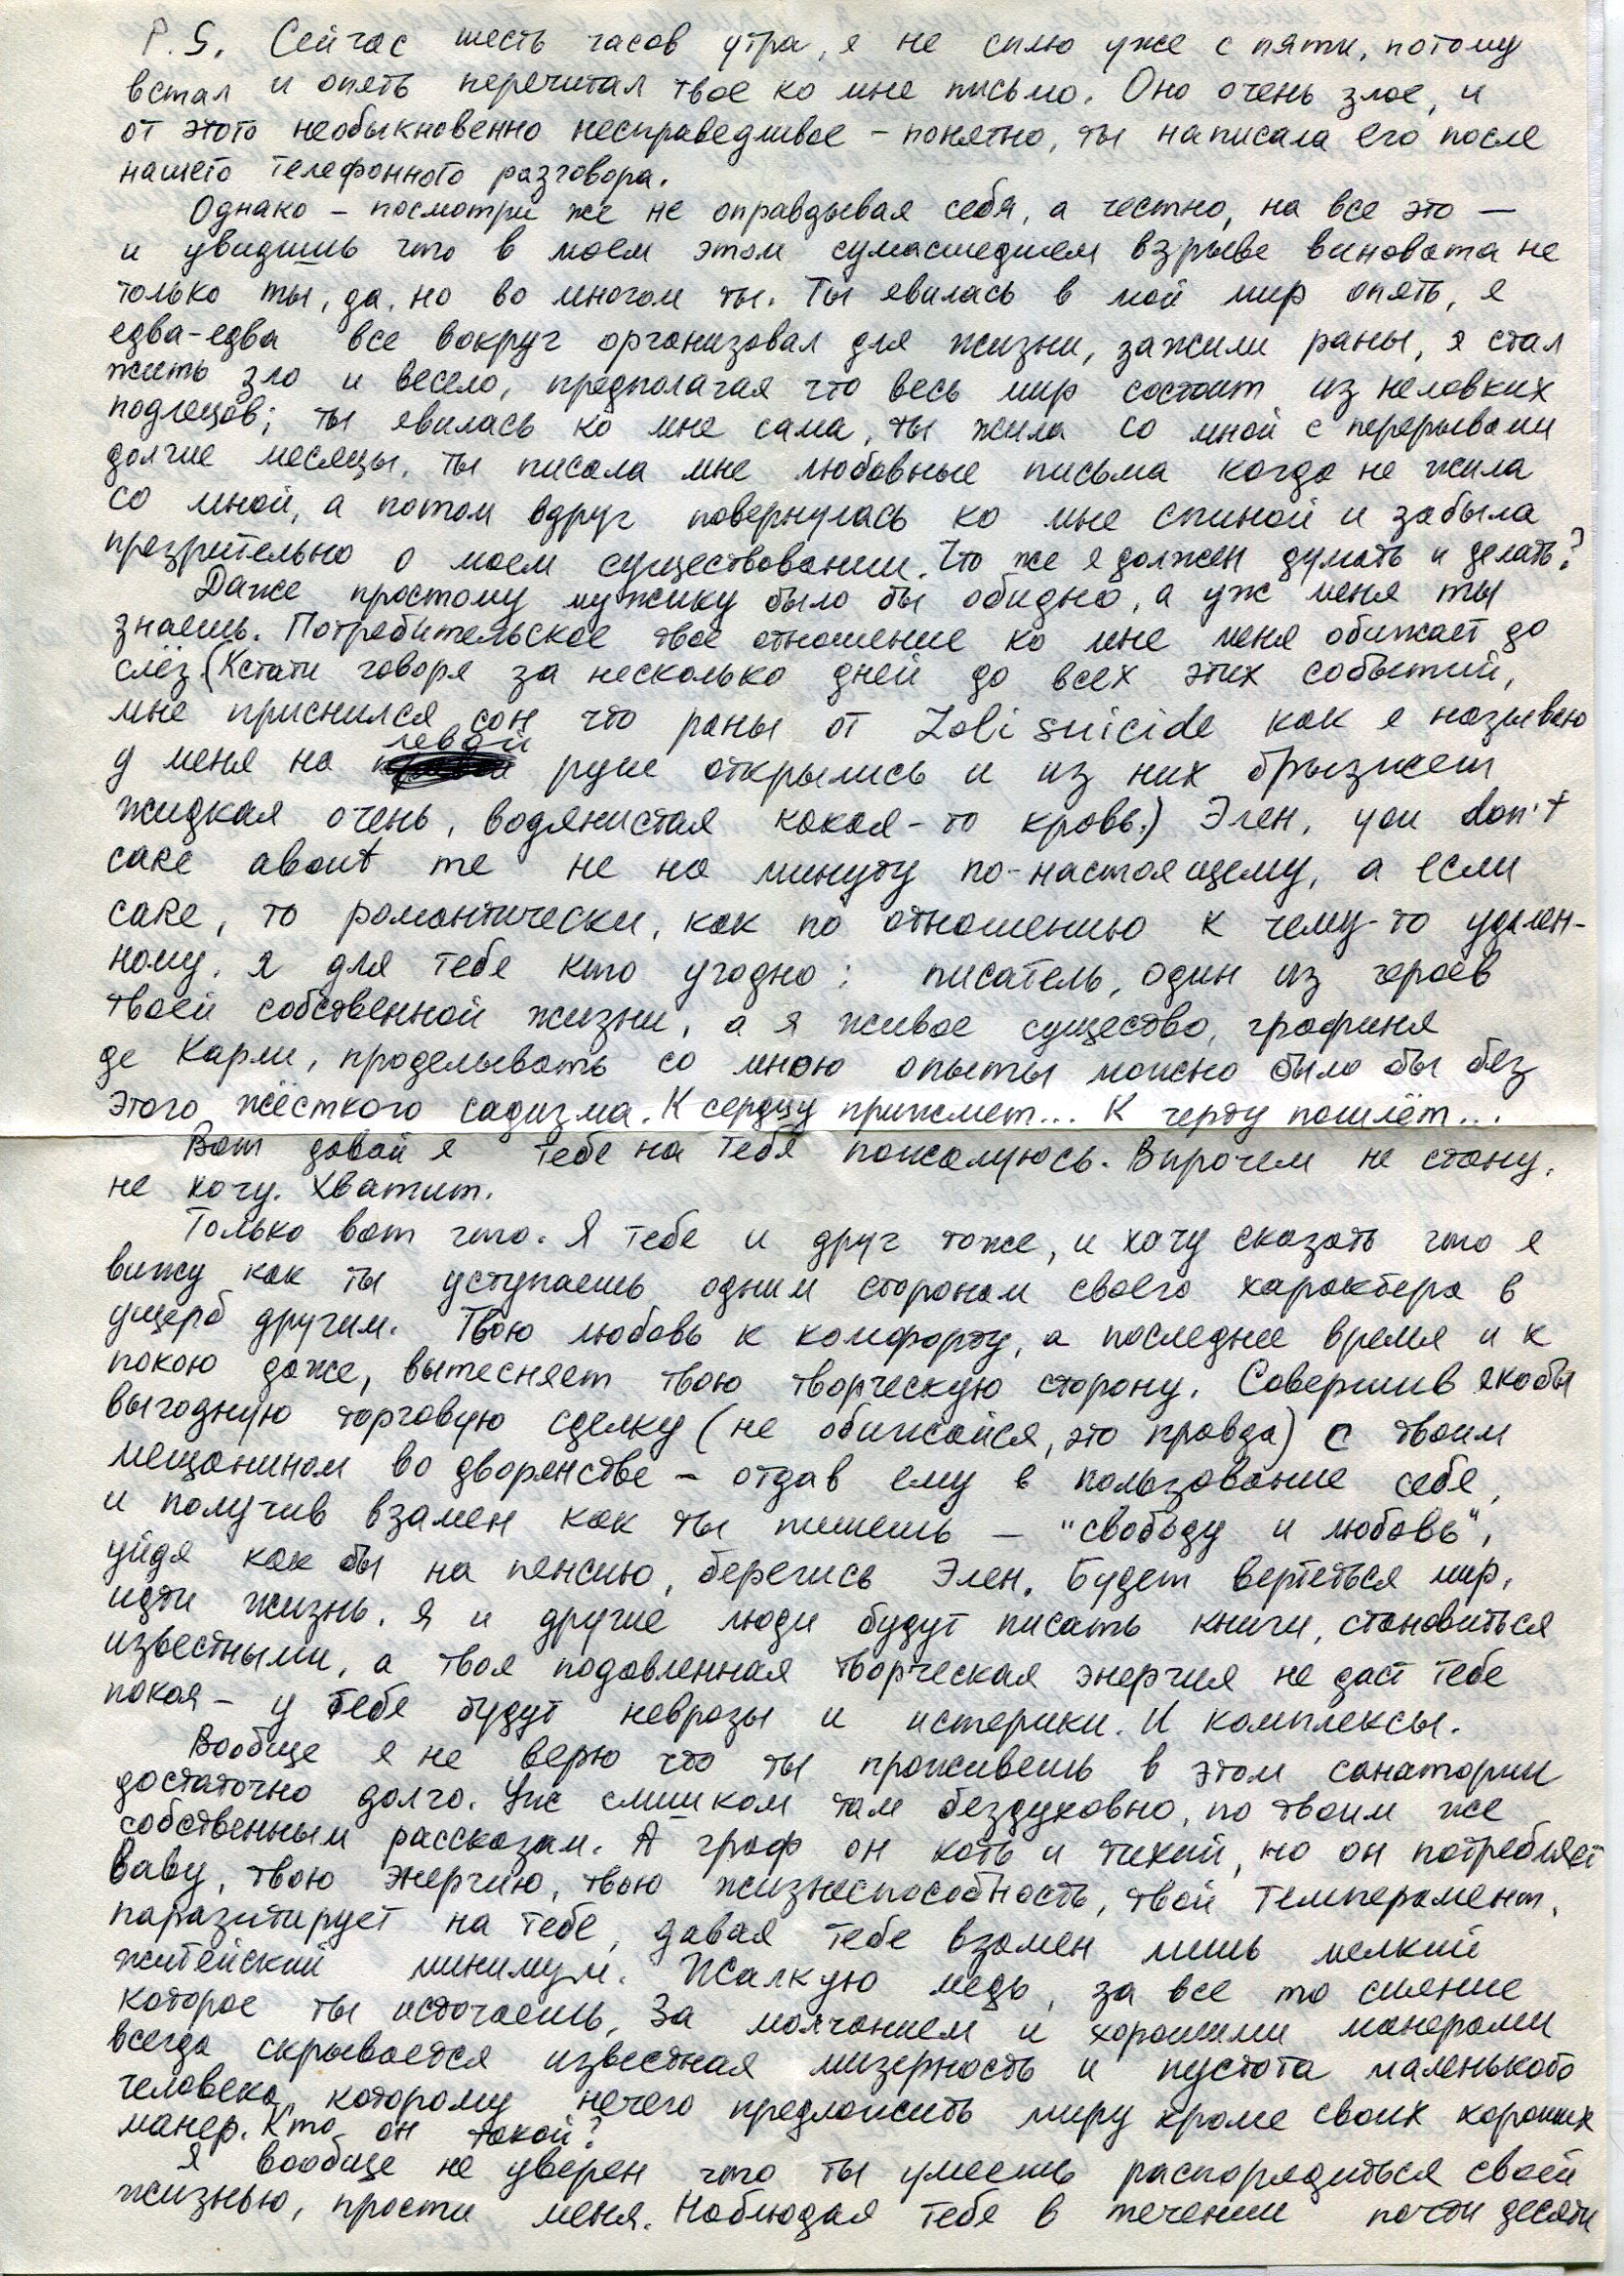 P.S. Сейчас шесть часов утра, я не сплю уже с пяти, потому
встал и опять перечитал твое ко мне письмо. Оно очень злое, и
от этого необыкновенно несправедливое – понятно, ты написала его после
нашего телефонного разговора.
Однако – посмотри же не оправдывая себя, а честно, на все это –
и увидишь что в моем этом сумасшедшем взрыве виновата не
только ты, да, но во многом ты. Ты явилась в мой мир опять, я
едва-едва все вокруг организовал для жизни, зажили раны, я стал
жить зло и весело, предполагая что весь мир состоит из неловких
подлецов; ты явилась ко мне сама, ты жила со мной с перерывами
долгие месяцы, ты писала мне любовные письма когда не жила
со мной, а потом вдруг повернулась ко мне спиной и забыла
презрительно о моем существовании. Что же я должен думать и делать?
Даже простому мужику было бы обидно, а уж меня ты
знаешь. Потребительское твое отношение ко мне меня обижает до
слёз. (Кстати говоря за несколько дней до всех этих событий,
мне приснился сон что раны от Loli suicide как я называю
у меня на левой руке открылись и из них брызжет
жидкая очень, водянистая какая-то кровь.) Элен, you don't
care about me не на минуту по-настоящему, а если
care, то романтически, как по отношению к чему-то удален-
ному. Я для тебя кто угодно: писатель, один из героев
твоей собственной жизни, а я живое существо, графиня
де Карли, проделывать со мною опыты можно было бы без
этого жёсткого садизма. К сердцу прижмет... К черту пошлёт...
Вот давай я тебе на тебя пожалуюсь. Впрочем не стану,
не хочу. Хватит.
Только вот что. Я тебе и друг тоже, и хочу сказать что я
вижу как ты уступаешь одним сторонам своего характера в
ущерб другим. Твою любовь к комфорту, а последнее время и к
покою даже, вытесняет твою творческую сторону. Совершив якобы
выгодную торговую сделку (не обижайся, это правда) с твоим
мещанином во дворянстве – отдав ему в пользование себя,
и получив взамен как ты пишешь – "свободу и любовь",
уйдя как бы на пенсию, берегись Элен. Будет вертеться мир,
идти жизнь. Я и другие люди будут писать книги, становиться
известными, а твоя подавленная творческая энергия не даст тебе
покоя – у тебя будут неврозы и истерики. И комплексы.
Вообще я не верю что ты проживешь в этом санатории
достаточно долго. Уж слишком там бездуховно, по твоим же
собственным рассказам. А граф он хоть и тихий, но он потребляет
вашу, твою энергию, твою жизнеспособность, твой темперамент,
паразитирует на тебе, давая тебе взамен лишь мелкий
житейский минимум. Жалкую медь, за все то сияние
которое ты источаешь. За молчанием и хорошими манерами
всегда скрывается известная мизерность и пустота маленького
человека, которому нечего предложить миру кроме своих хороших
манер. Кто он такой?
Я вообще не уверен что ты умеешь распорядиться своей
жизнью, прости меня. Наблюдая тебя в течении почти десяти